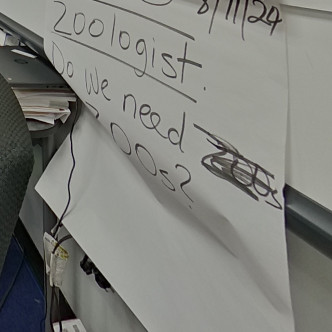 8/11/24
Zoologist.
Do we need
zoos?